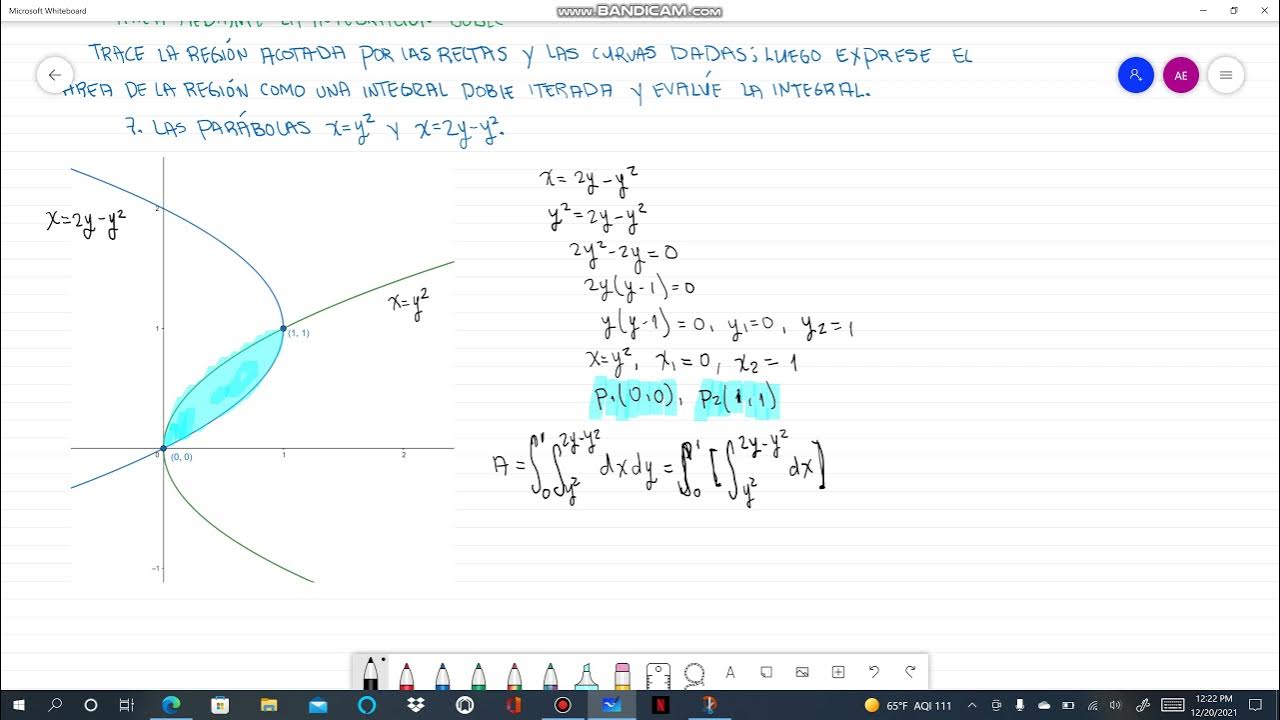 Microsoft Whiteboard
WWW.BANDICAM.COM
TRACE LA REGIÓN ACOTADA POR LAS RECTAS Y LAS CURVAS DADAS; LUEGO EXPRESE EL
ÁREA DE LA REGIÓN COMO UNA INTEGRAL DOBLE ITERADA Y EVALÚE LA INTEGRAL.
AE
7. LAS PARÁBOLAS x=y² y x=2y-y².
x=2y-y²
2
x=y²
1
(1, 1)
0
(0, 0)
1
2
-1
x=2y-y²
y²=2y-y²
2y²-2y=0
2y(y-1)=0
y(y-1)=0, y₁=0, y₂=1
x=y², x₁=0, x₂=1
P₁(0,0), P₂(1,1)
A=∫₀¹∫_{y²}^{2y-y²} dxdy=∫₀¹[∫_{y²}^{2y-y²} dx]
A
65°F AQI 111
12:22 PM
12/20/2021